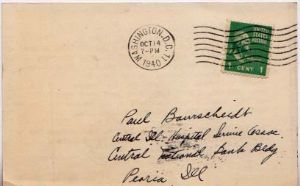 WASHINGTON, D.C. 11
OCT 14
7-PM
1940
UNITED STATES POSTAGE
1 CENT 1
Paul Baurscheidt
Central Ill-Hospital Service Assoc
Central National Bank Bldg
Peoria Ill